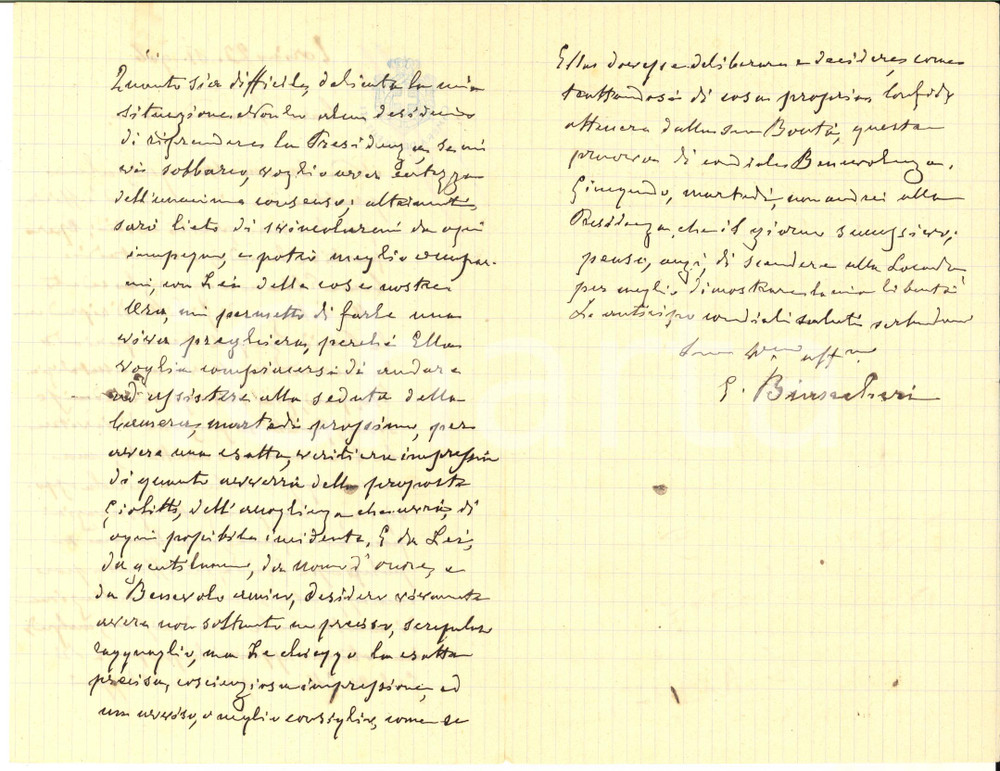 Quanto sia difficile, delicata la mia
situazione. Non ho alcun desiderio
di riprendere la Presidenza, se mi
vi sobbarco, voglio aver certezza
dell'unanime consenso; altrimenti
sarò lieto di svincolarmi da ogni
impegno, e potrò meglio
con Lei delle cose nostre
Ora, mi permetto di farle una
viva preghiera, perché Ella
voglia compiacersi di andare
ad assistere alla seduta della
Camera, martedì prossimo, per
avere una esatta, veritiera impressione
di quanto avverrà della proposta
Giolitti, dell'accoglienza che avrà, di
ogni possibile incidente. E da Lei,
da gentiluomo, da uomo d'onore, e
da Benevolo amico, desidero vivamente
avere non soltanto un preciso, scrupoloso
ragguaglio, ma Le chieggo la esatta
precisa, coscienziosa impressione, ed
un avviso, o meglio consiglio, come se
Ella dovesse deliberare e decidere, come
trattandosi di cosa propria. Confido
ottenere dalla sua Bontà, questa
prova di cordiale Benevolenza.
Giungendo, martedì, non andrei alla
Presidenza, che il giorno successivo;
penso, anzi, di scendere alla Locanda
per meglio dimostrare la mia libertà
Le anticipo cordiali saluti
Suo aff.
G. Biancheri